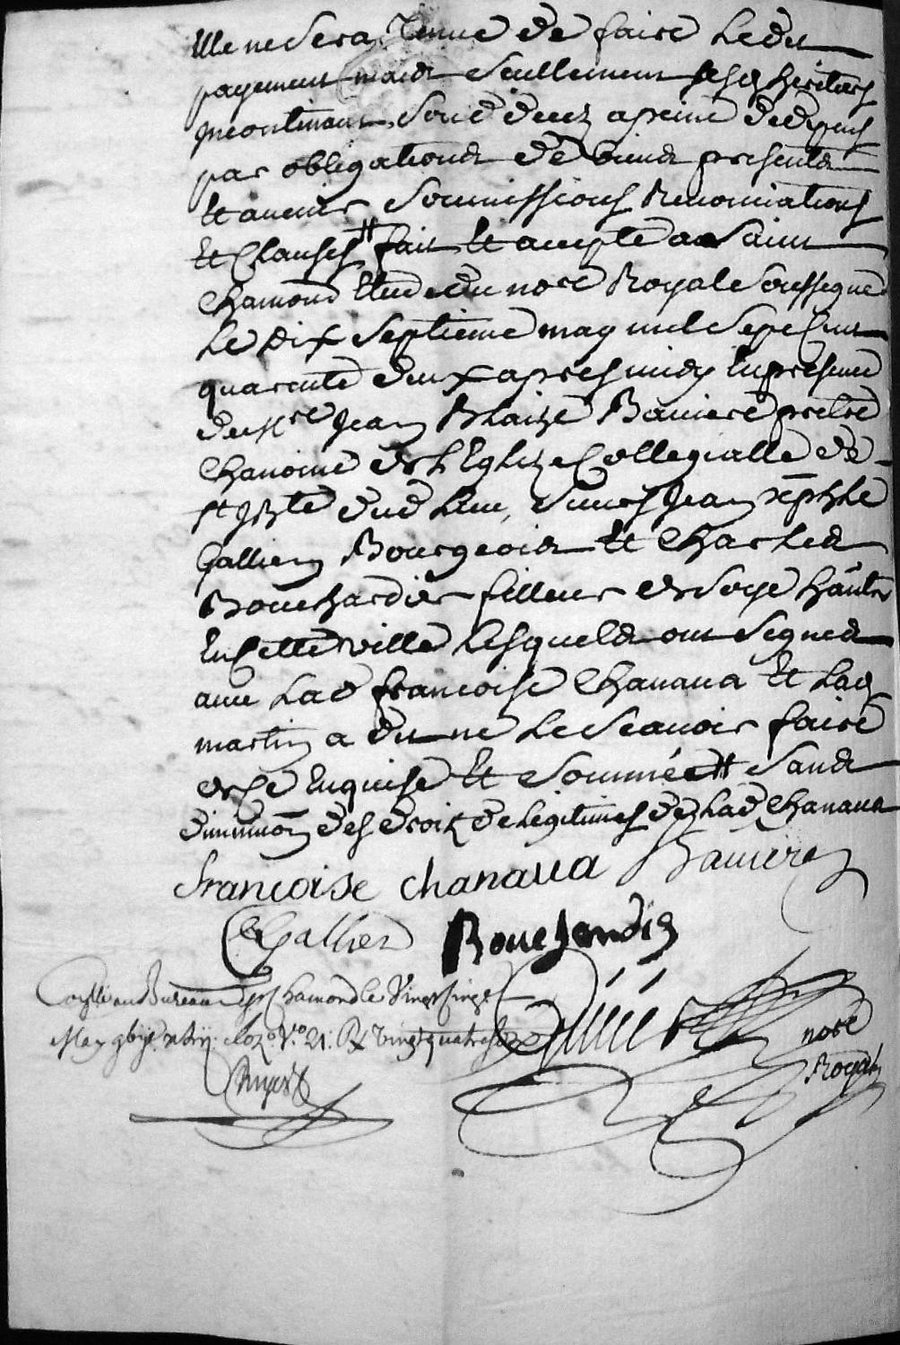 Elle ne Sera Tenue de faire Ledit
payement mais Seullement Sesd heritiers
Incontinant Sond deces a peine de depens
par obligations de biens presents
Et avenir Soumissions Renonciations
Et Clauses # fait Et accepté a Saint
chamond Etude du nore Royal Soussigné
Le Dix Septieme may mil Sept Cent
quarente deux apres midy En presence
de Mre Jean Blaize Baniere pretre
chanoine de L'Eglize Collegialle de
st Jean Bte dud Lieu, Sieurs Jean Bptiste
Gallien Bourgeois Et Charles
Bouchardier filleur de Soye hants
En Cette ville Lesquels ont Signés
avec Lad francoise Chanava Et Lad
martin a dit ne Le Scavoir faire
de Ce Enquise Et Sommée # Sans
diminuon des droits de Legitimes de Lad Chanava
francoise chanava Baniere
Gallien Bouchardier
Conllé au Bureau de St Chamond le Vingt Cinq
May Rx Vingt quatre sols
nore
Royal